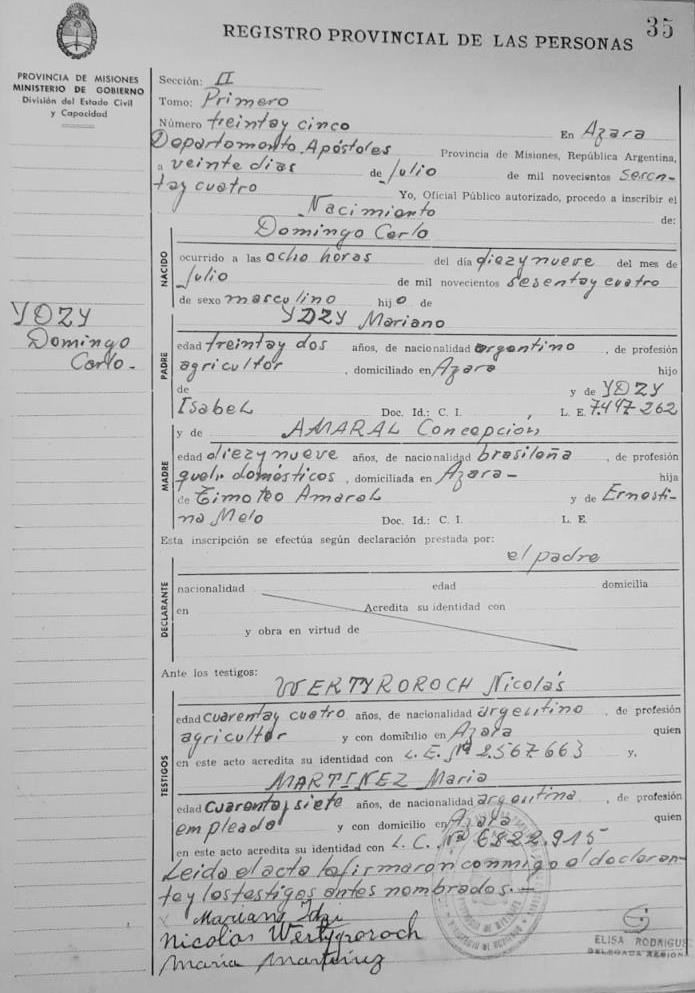 35
REGISTRO PROVINCIAL DE LAS PERSONAS
PROVINCIA DE MISIONES
MINISTERIO DE GOBIERNO
División del Estado Civil
y Capacidad
Sección: II
Tomo: Primero
Número treintay cinco En Azara
Departamento Apóstoles Provincia de Misiones, República Argentina,
a veinte dias de Julio de mil novecientos Sesen-
tay cuatro Yo, Oficial Público autorizado, procedo a inscribir el
Nacimiento de:
Domingo Carlo
NACIDO
ocurrido a las ocho horas del día diezynueve del mes de
Julio de mil novecientos sesentay cuatro
de sexo masculino hijo de
YDZY Domingo Carlo.-
PADRE
YDZY Mariano
edad treintay dos años, de nacionalidad argentino, de profesión
agricultor, domiciliado en Azara hijo
de y de YDZY
Isabel Doc. Id.: C. I. , L. E. 7.497.262
MADRE
y de AMARAL Concepcion
edad diezynueve años, de nacionalidad brasileña, de profesión
queh. domésticos, domiciliada en Azara- hija
de Timoteo Amaral y de Ernesti-
na Melo Doc. Id.: C. I. L. E.
Esta inscripción se efectúa según declaración prestada por:
el padre
DECLARANTE
nacionalidad edad domicilia
en Acredita su identidad con
y obra en virtud de
Ante los testigos:
TESTIGOS
WERTYROROCH Nicolás
edad cuarentay cuatro años, de nacionalidad argentino, de profesión
agricultor y con domicilio en Azara quien
en este acto acredita su identidad con L.E. Nº 2.567.663 y,
MARTINEZ Maria
edad cuarentay siete años, de nacionalidad argentina, de profesión
empleado y con domicilio en Azara quien
en este acto acredita su identidad con L.C. Nº 6.822.915
Leida el acta la firmaron conmigo el declaran-
te y los testigos antes nombrados.-
Mariano Idzi
Nicolas Wertygroroch
Maria Martinez
ELISA RODRIGUE
DELEGADA REGION